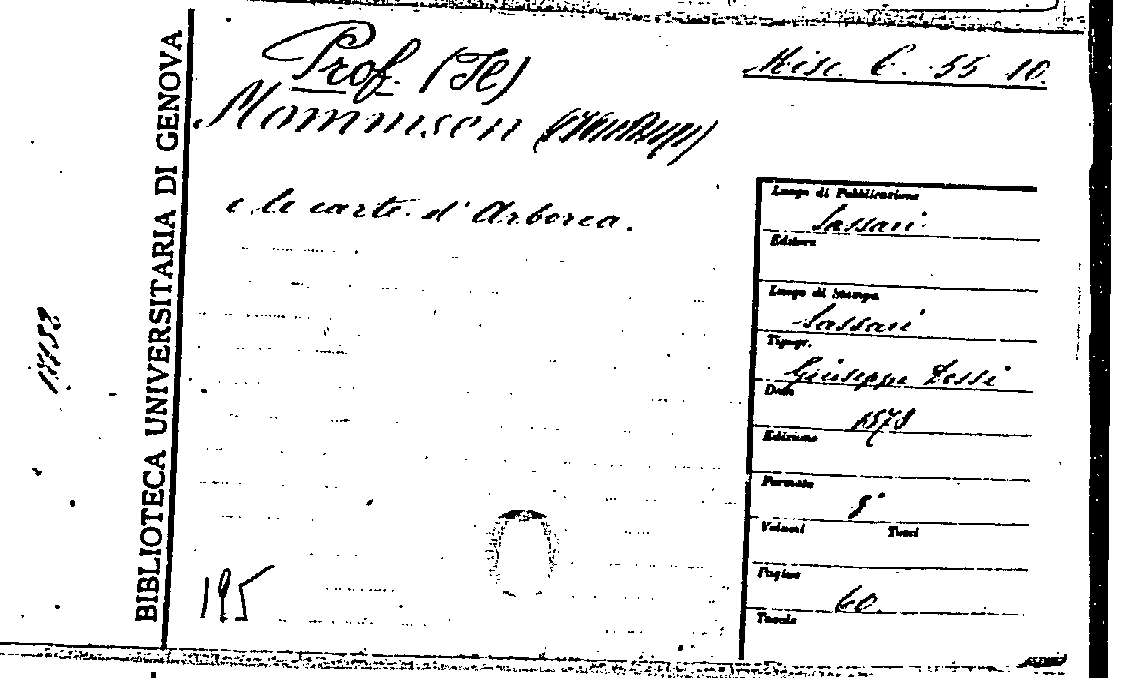 Prof. (Il)
Misc. C. 55 10.
Mommsen
e le carte d'Arborea.
BIBLIOTECA UNIVERSITARIA DI GENOVA
Luogo di Pubblicazione
Sassari
Editore
Luogo di Stampa
Sassari
Tipogr.
Giuseppe Dessì
Data
1878
Edizione
Formato
8°
Volumi Tomi
Pagine
60
Tavole
195